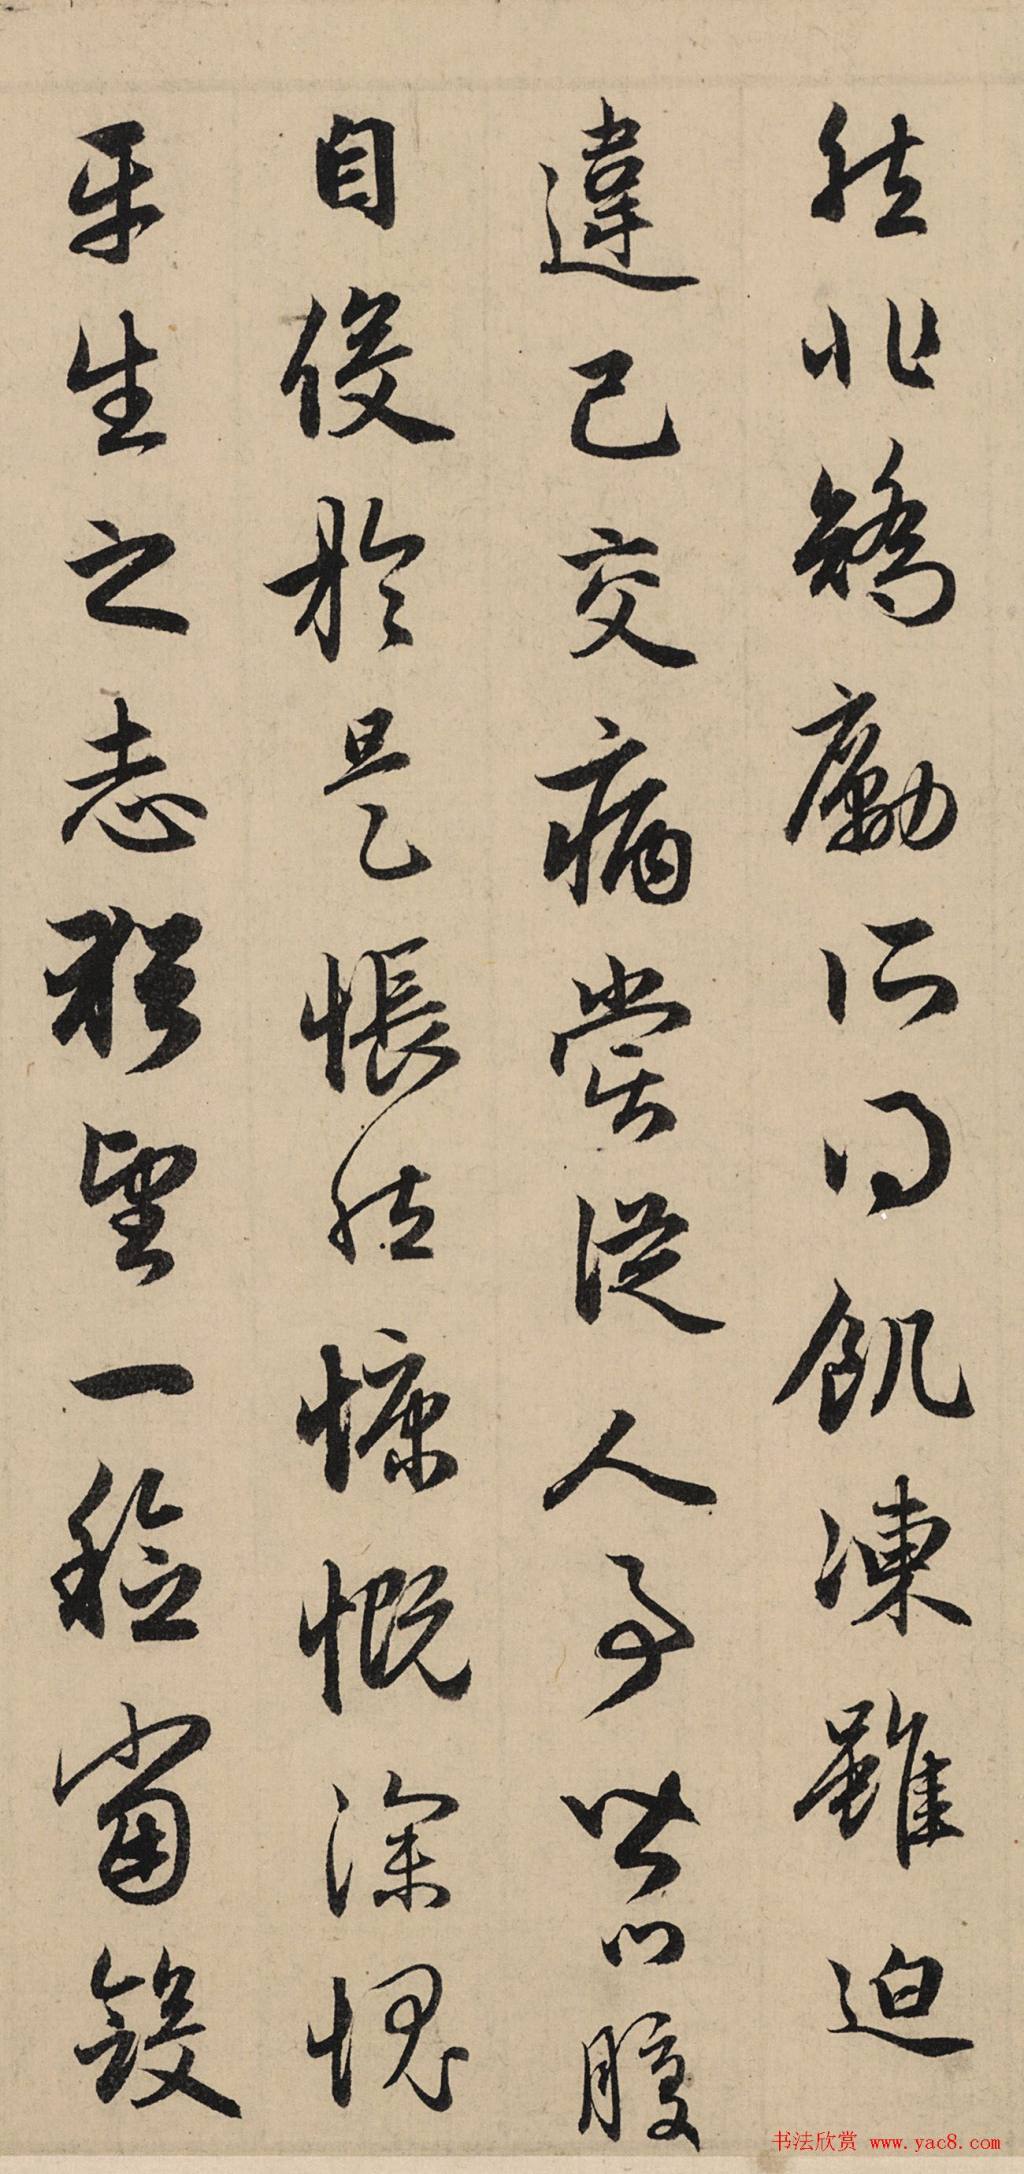 然非矯勵所得飢凍雖迫
違己交病嘗從人事皆口腹
自役於是悵然慷慨深愧
平生之志猶望一稔當斂
书法欣赏 www.yac8.com